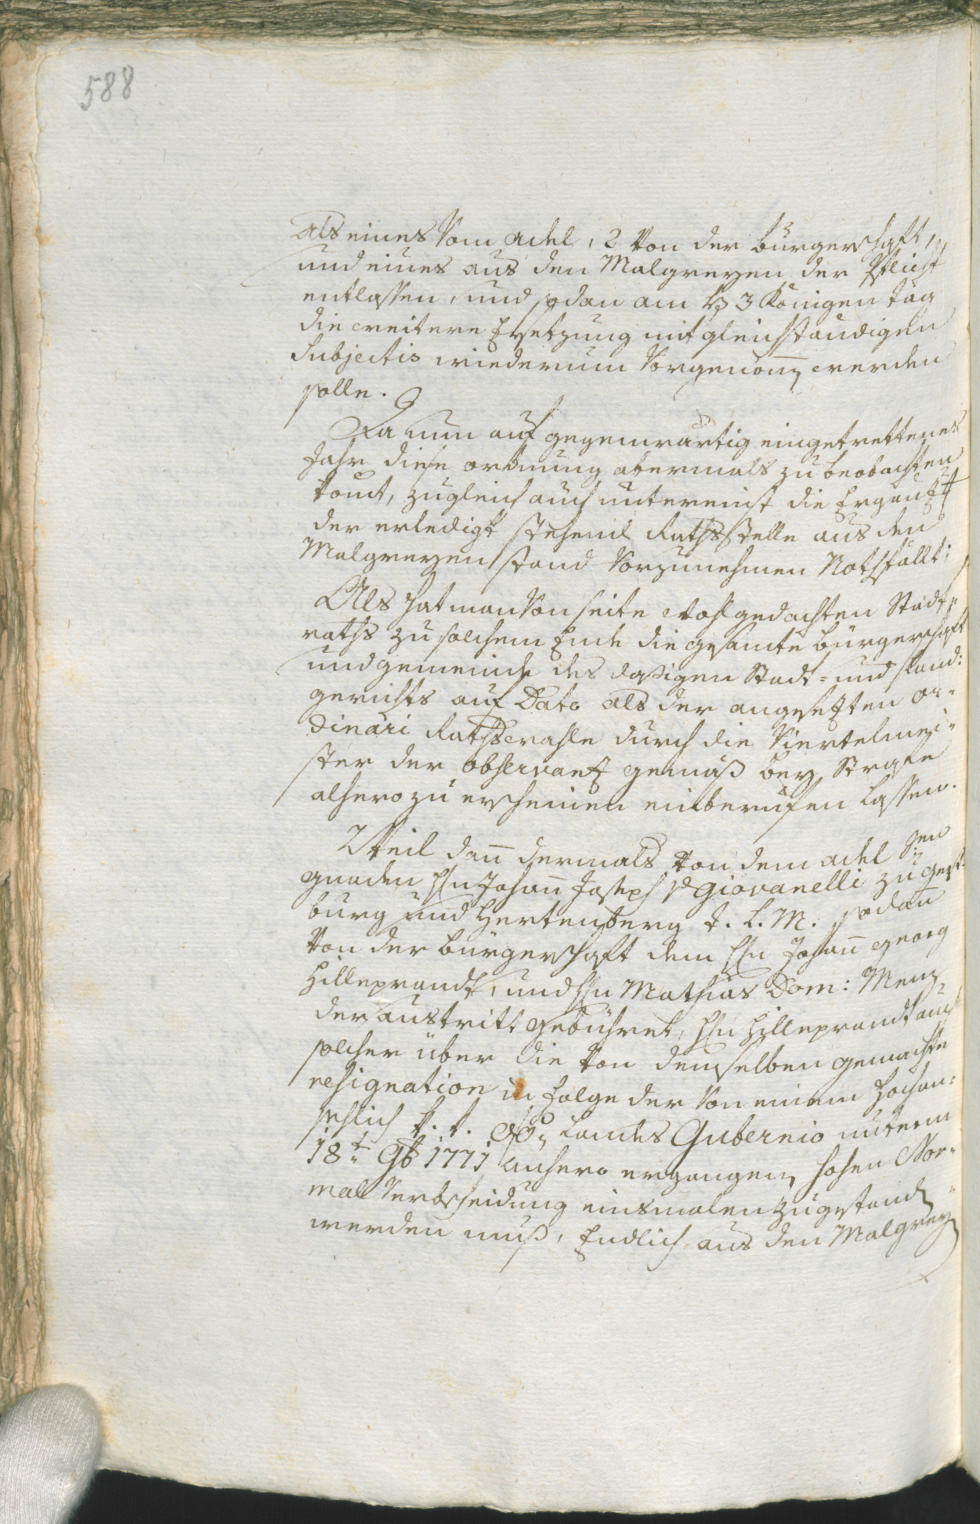 588
als eines Vom Adel, 2 Von der burgerschafft,
und eines aus den Malgreyen der Pflicht
entlassen, und sodan am h 3 Königen tag
die weitere Ersetzung mit gleichständigen
Subjectis wiederum Vorgenom̄en werden
solle.
Da nun auf gegenwärtig eingetrettenes
Jahr diese ordnung abermals zu beobachten
komt, zugleich auch untereinst die Ergänz
der erledigt stehend Rathsstelle aus den
Malgreyenstand Vorzunehmen Nothfällt:
Als hat man Von seite wohlgedachten Stadt
raths zu solchem Ende die gesamte burgerschaft
und gemeinde des dasigen Stadt= und Land:
gerichts auf Dato als der angesetzten or=
dinäri Rathswahle durch die Viertelmei=
ster der observanz gemäß bey Strafe
alhero zu erscheinen einberufen lassen.
Weil dan̄ dermals Von dem Adel
gnaden H̄n Johan̄ Joseph v Giovanelli zu Gerst=
burg und Hertenberg t. l. M. sodan̄
Von der burgerschaft dem H̄n Johan̄ Georg
Hilleprandt, und H̄n Mathias Dom: Menz
der austritt gebühret, H̄n Hilleprandt auch
solcher über die Von demselben gemachte
resignation in folge der Von einem hochan=
sehlich k. k. Landes Gubernio unterm
18t 9b 1771 anhero ergangen hohen Nor=
mal Verbscheidung einsmalen zugestand
werden muß, Endlich aus den Malgrey